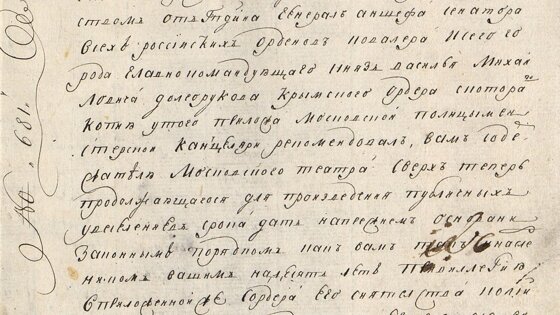 ством отъ Гдина Генералъ аншефа сенатора
всехъ россійскихъ орденовъ кавалера и всего го
рода Главнокомандующаго Князь василья Михаи
ловича долгорукова Крымского ордера с котора
Копия у того
Московской полицымеи
стерской канцеляри рекомендовалъ, вамъ соде
ржателю Московского театра сверхъ теперь
продолжающагося для произведения публичныхъ
увеселениевъ срока дать на прежнемъ основани
Законнымъ порядкомъ какъ вамъ
вашимъ летъ
сприложенной ордера его сиятелства копии
681